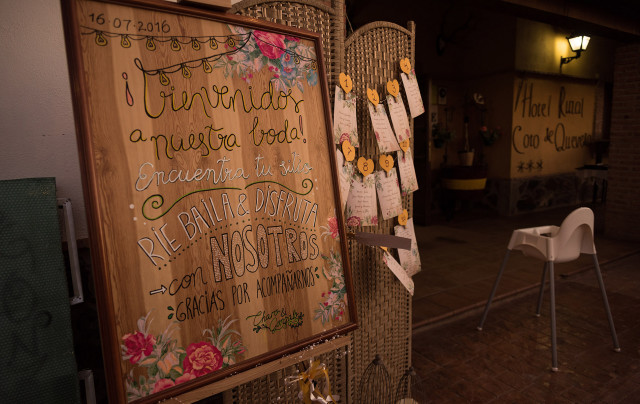 16-07-2016
¡Bienvenidos
a nuestra boda!
Encuentra tu sitio
RIE BAILA & DISFRUTA
con NOSOTROS
GRACIAS POR ACOMPAÑARNOS
Hotel Rural
Coro de Quevedo